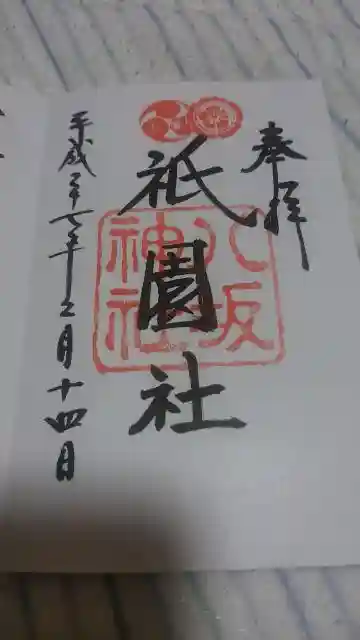 奉拝
祇園社
八坂
神社
平成二十七年二月十四日